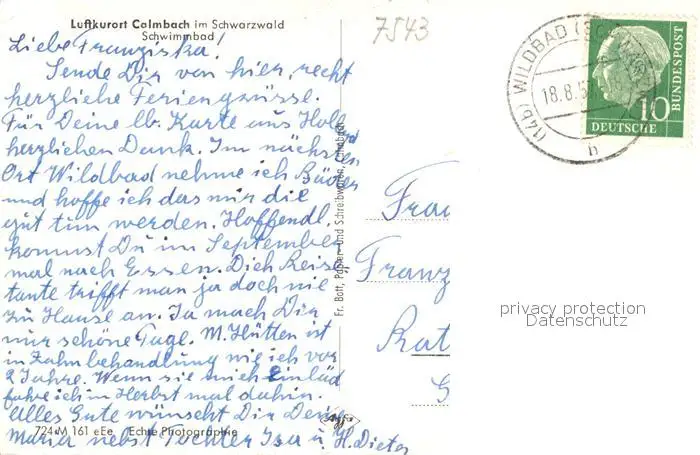 Luftkurort Calmbach im Schwarzwald
Schwimmbad
7543
Liebe Franziska!
Sende Dir von hier, recht
herzliche Feriengrüsse.
Für Deine lb. Karte aus Holland
herzlichen Dank. Im nächsten
Ort Wildbad nehme ich Bäder
und hoffe ich das mir die
gut tun werden. Hoffendl.
kommst Du im September
mal nach Essen. Dich Reise
tante trifft man ja doch nie
zu Hause an. Ja mach Dir
nur schöne Tage. M. Hütten ist
in Zahnbehandlung wie ich vor
2 Jahre. Wenn sie mich einläd
fahre ich im Herbst mal dahin.
Alles Gute wünscht Dir Deine
Maria nebst Tochter Isa u. H. Dieter
724 M 161 eEe Echte Photographie
Agfa
Fr. Bott, Papier- und Schreibwaren, Calmbach
(14b) WILDBAD
18.8.5
h
10
DEUTSCHE
BUNDESPOST
Frau
Franz
Rat
privacy protection
Datenschutz